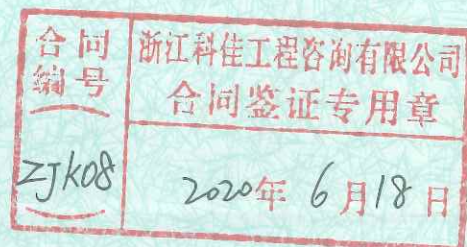 合同
编号
浙江科佳工程咨询有限公司
合同鉴证专用章
ZJK08
2020年 6月18日